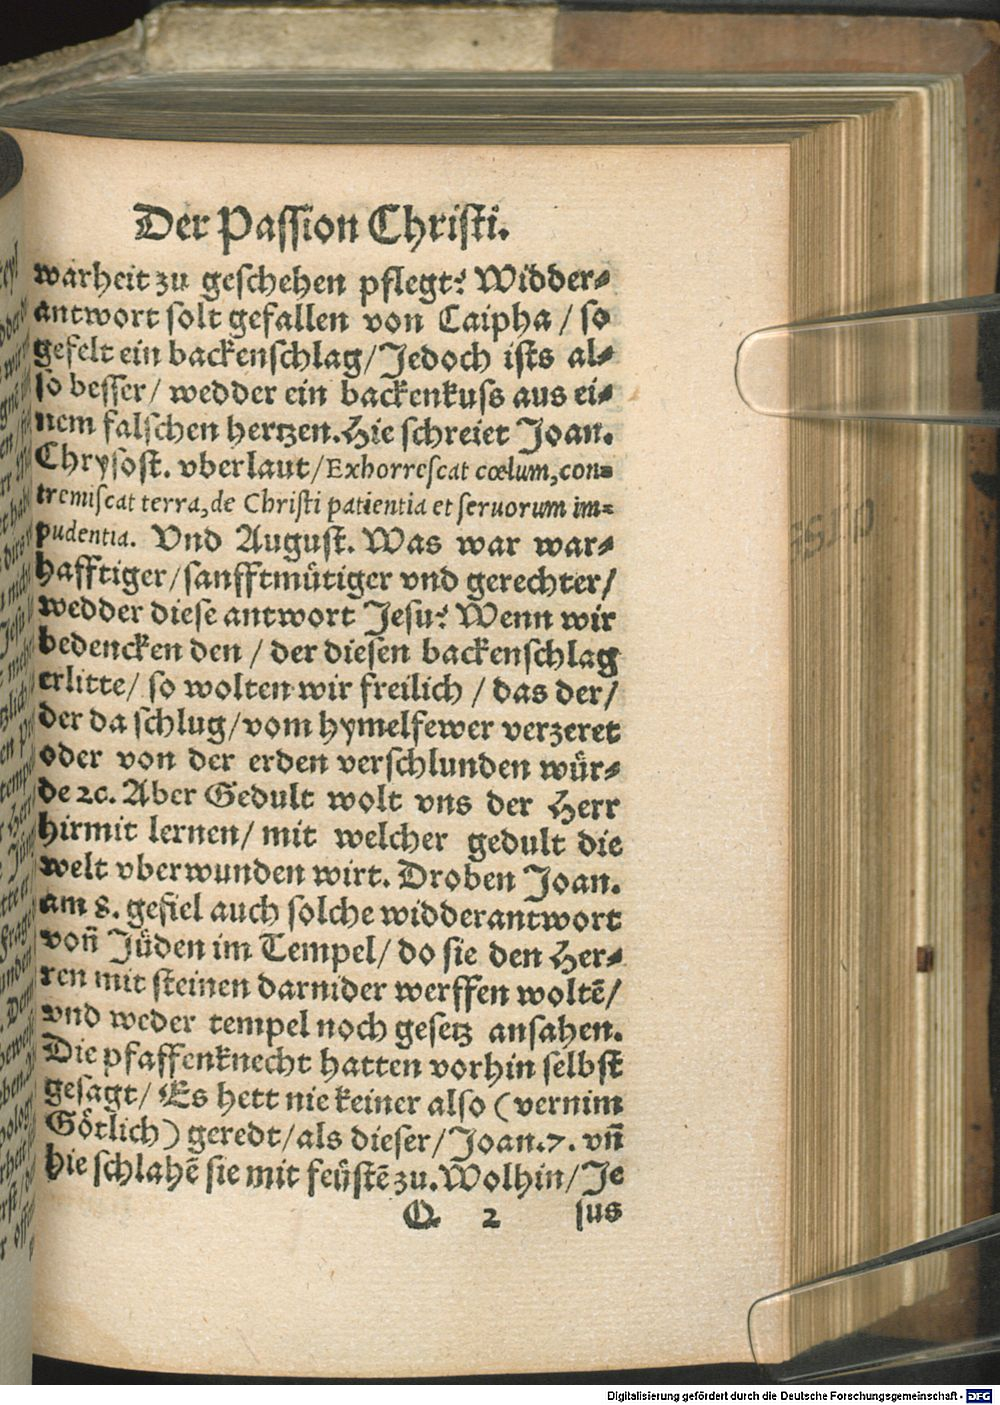 Der Passion Christi.
warheit zu geschehen pflegt? Widder⸗
antwort solt gefallen von Caipha / so
gefelt ein backenschlag/Jedoch ists al⸗
so besser/ wedder ein backenkuss aus ei⸗
nem falschen hertzen. Hie schreiet Joan.
Chrysost. vberlaut/Exhorrescat cœlum, con⸗
tremiscat terra, de Christi patientia et seruorum im⸗
pudentia. Vnd August. Was war war⸗
hafftiger/sanfftmütiger vnd gerechter/
wedder diese antwort Jesu? Wenn wir
bedencken den / der diesen backenschlag
erlitte/ so wolten wir freilich / das der/
der da schlug/vom hymelfewer verzeret
oder von der erden verschlunden wür⸗
de ⁊c. Aber Gedult wolt vns der Herr
hirmit lernen/ mit welcher gedult die
welt vberwunden wirt. Droben Joan.
am 8. gefiel auch solche widderantwort
voñ Jüden im Tempel/ do sie den Her⸗
ren mit steinen darnider werffen woltē/
vnd weder tempel noch gesetz ansahen.
Die pfaffenknecht hatten vorhin selbst
gesagt/ Es hett nie keiner also (vernim
Götlich) geredt/als dieser/Joan.7. vñ
hie schlahē sie mit feüstē zu. Wolhin/Je
Q 2 sus
Digitalisierung gefördert durch die Deutsche Forschungsgemeinschaft - DFG